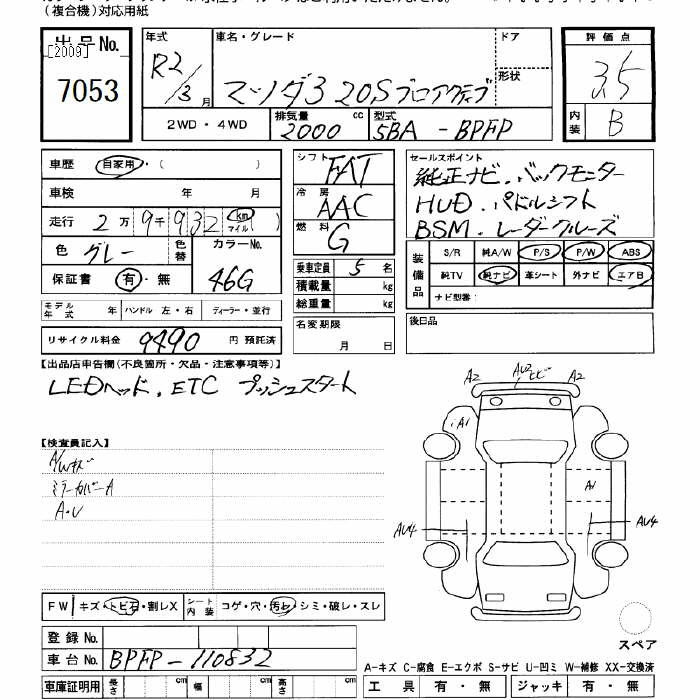 (複合機)対応用紙
出品No.
[2009]
7053
年式 R2/3 月
車名・グレード マツダ3 20Sプロアクティブ
ドア
形状
2WD・4WD
排気量 2000 cc
型式 5BA-BPFP
評価点
3.5
内装 B
車歴 自家用・( )
車検 年 月
走行 2万9千932 km マイル
色 グレー
色替
カラーNo. 46G
保証書 有・無
モデル年式 年 ハンドル 左・右 ディーラー・並行
リサイクル料金 9490 円 預託済
シフト FAT
冷房 AAC
燃料 G
乗車定員 5 名
積載量 kg
総重量 kg
名変期限
月 日
セールスポイント
純正ナビ.バックモニター
HUD.パドルシフト
BSM.レーダークルーズ
装備品
S/R 純A/W P/S P/W ABS
純TV 純ナビ 革シート 外ナビ エアB
ナビ型番:
後日品
【出品店申告欄(不良箇所・欠品・注意事項等)】
LEDヘッド.ETC プッシュスタート
【検査員記入】
A/Wキズ
ミラーカバーA
A・U
A2 AU2 A2
A1
A1
AU4 AU4
FW キズ・トビ石・割レX
シート内装 コゲ・穴・汚レ・シミ・破レ・スレ
登録No.
車台No. BPFP-110832
車庫証明用 長さ cm 幅 cm 高さ cm
スペア
A-キズ C-腐食 E-エクボ S-サビ U-凹ミ W-補修 XX-交換済
工具 有・無 ジャッキ 有・無